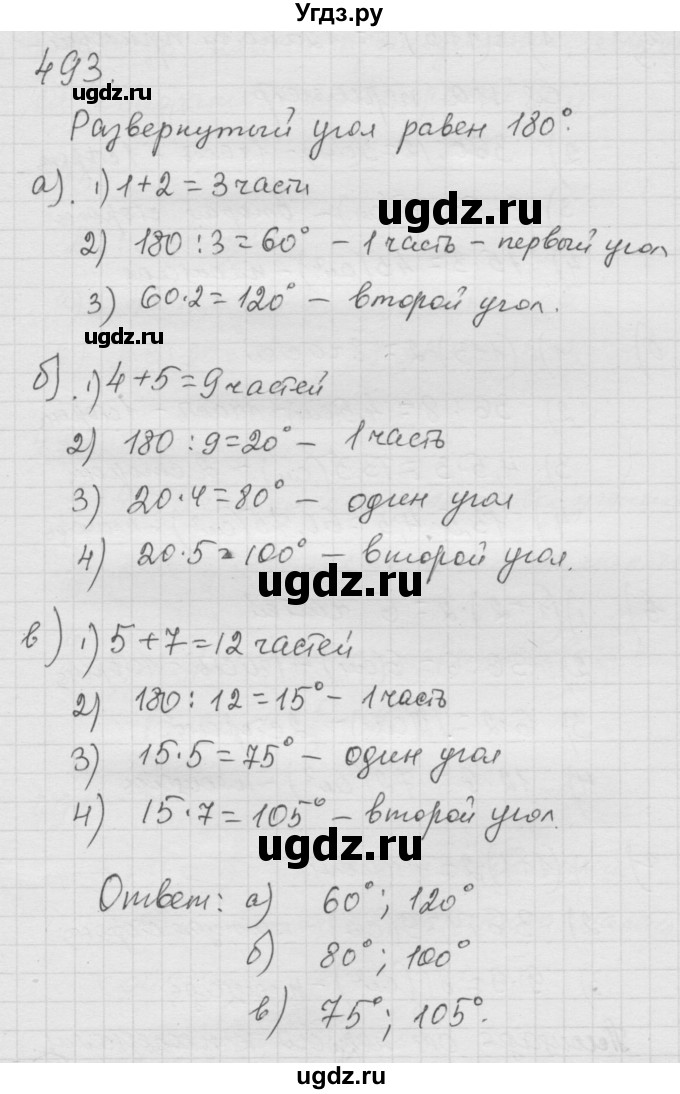 Угдз.ру
493.
ugdz.ru
Развернутый угол равен 180°.
а). 1) 1+2 = 3 части
ugdz.ru
2) 180 : 3 = 60° – 1 часть – первый угол
3) 60·2 = 120° – второй угол.
ugdz.ru
б). 1) 4+5 = 9 частей
2) 180 : 9 = 20° – 1 часть
3) 20·4 = 80° – один угол
4) 20·5 = 100° – второй угол.
ugdz.ru
в) 1) 5+7 = 12 частей
2) 180 : 12 = 15° – 1 часть
3) 15·5 = 75° – один угол
4) 15·7 = 105° – второй угол.
ugdz.ru
Ответ: а) 60°; 120°
б) 80°; 100°
в) 75°; 105°.
ugdz.ru